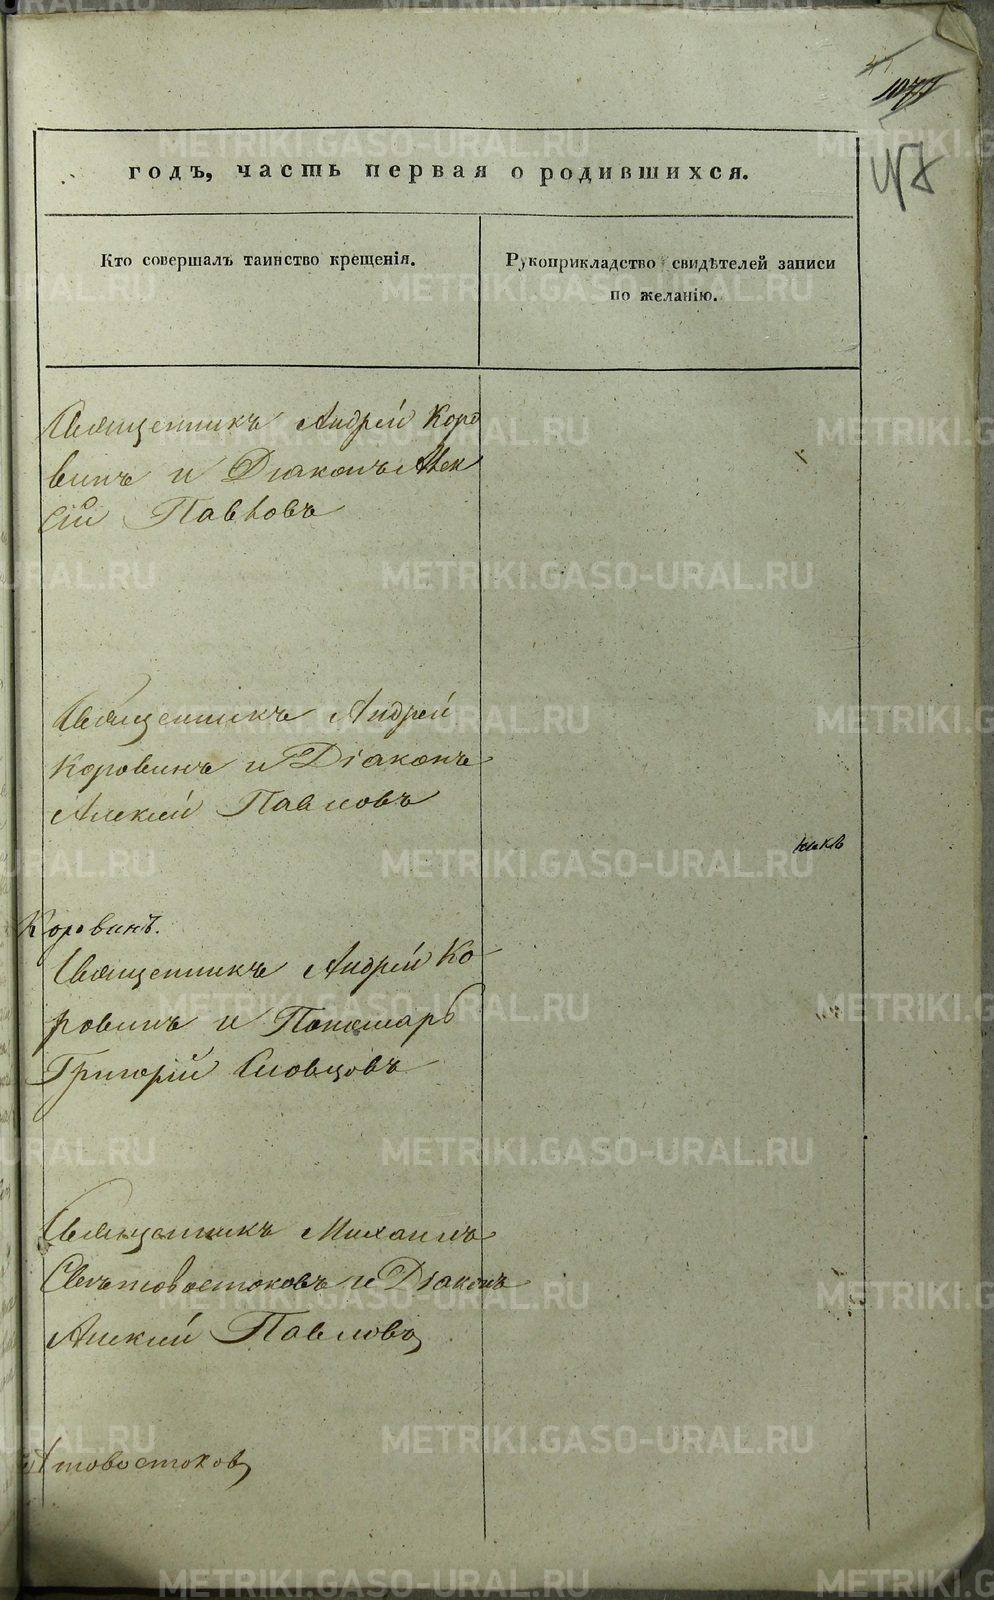 1077
годъ, часть первая о родившихся.
Кто совершалъ таинство крещенія.
Рукоприкладство свидѣтелей записи
по желанію.
Священникъ Андрей Коро
винъ и Діаконъ Алек
сій Павловъ
Священникъ Андрей
Коровинъ и Діаконъ
Алексій Павловъ
Коровинъ.
Священникъ Андрей Ко-
ровинъ и Пономарь
Григорій Словцовъ
Священникъ Михаилъ
Световостоковъ и Діаконъ
Алексій Павловъ
ятовостоковъ
METRIKI.GASO-URAL.RU